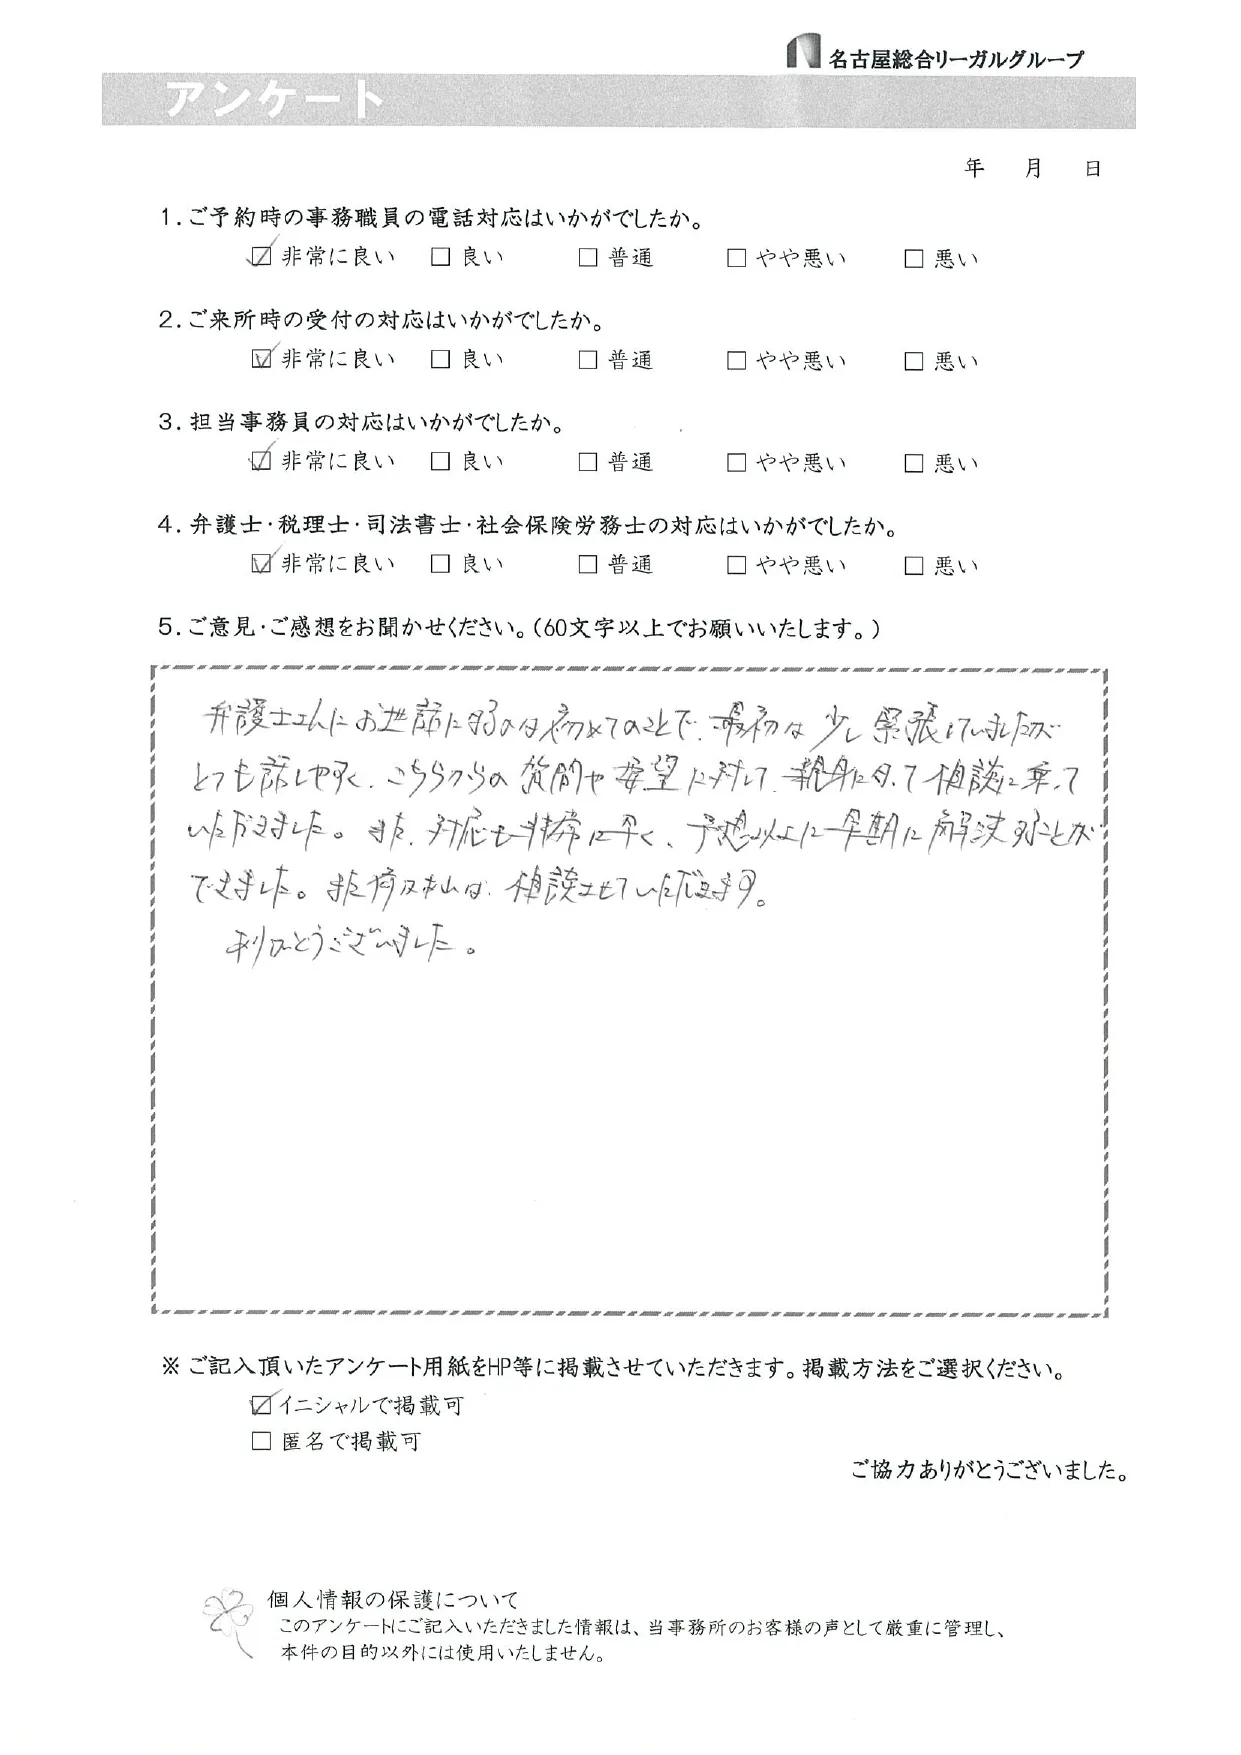 名古屋総合リーガルグループ
アンケート
年 月 日
1.ご予約時の事務職員の電話対応はいかがでしたか。
☑ 非常に良い □ 良い □ 普通 □ やや悪い □ 悪い
2.ご来所時の受付の対応はいかがでしたか。
☑ 非常に良い □ 良い □ 普通 □ やや悪い □ 悪い
3.担当事務員の対応はいかがでしたか。
☑ 非常に良い □ 良い □ 普通 □ やや悪い □ 悪い
4.弁護士・税理士・司法書士・社会保険労務士の対応はいかがでしたか。
☑ 非常に良い □ 良い □ 普通 □ やや悪い □ 悪い
5.ご意見・ご感想をお聞かせください。(60文字以上でお願いいたします。)
弁護士さんにお世話になるのは初めてのことで、最初は少し緊張していましたが
とても話しやすく、こちらからの質問や要望に対して、親身になって相談に乗って
いただきました。また、対応も非常に早く、予想以上に早期に解決することが
できました。また何かあれば、相談させていただきます。
ありがとうございました。
※ ご記入頂いたアンケート用紙をHP等に掲載させていただきます。掲載方法をご選択ください。
☑ イニシャルで掲載可
□ 匿名で掲載可
ご協力ありがとうございました。
個人情報の保護について
このアンケートにご記入いただきました情報は、当事務所のお客様の声として厳重に管理し、
本件の目的以外には使用いたしません。